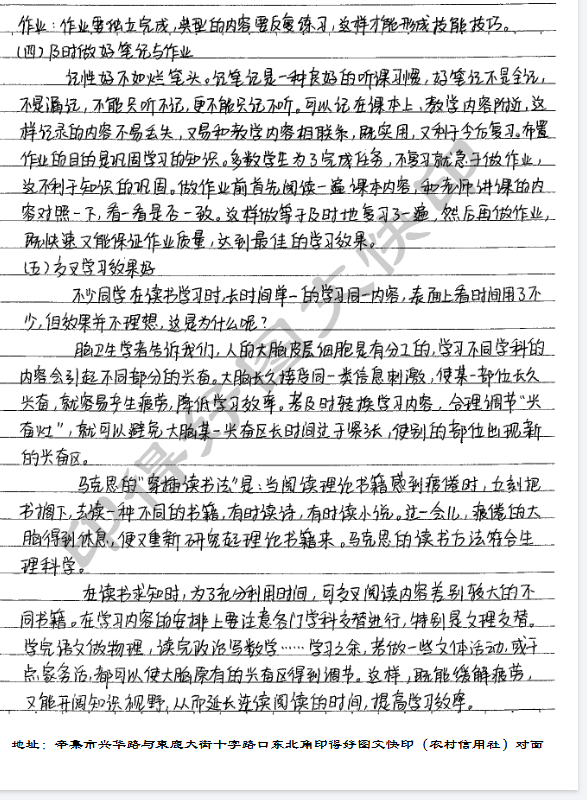 作业：作业要独立完成，典型的内容要反复练习，这样才能形成技能技巧。
(四)及时做好笔记与作业
记性好不如烂笔头。记笔记是一种良好的听课习惯，好笔记不是全记，
不是漏记，不能只听不记，更不能只记不听。可以记在课本上，教学内容附近，这
样记录的内容不易丢失，又易和教学内容相联系，既实用，又利于今后复习。布置
作业的目的是巩固学习的知识。多数学生为了完成任务，不复习就急于做作业，
这不利于知识的巩固。做作业前首先阅读一遍课本内容，和老师讲课的内
容对照一下，看一看是否一致。这样做等于及时地复习了一遍，然后再做作业，
既快速又能保证作业质量，达到最佳的学习效果。
(五)交叉学习效果好
不少同学在读书学习时，长时间单一的学习同一内容，表面上看时间用了不
少，但效果并不理想，这是为什么呢？
脑卫生学者告诉我们，人的大脑皮层细胞是有分工的，学习不同学科的
内容会引起不同部分的兴奋。大脑长久接受同一类信息刺激，使某一部位长久
兴奋，就容易产生疲劳，降低学习效率。若及时转换学习内容，合理调节“兴
奋灶”，就可以避免大脑某一兴奋区长时间过于紧张，使别的部位出现新
的兴奋区。
马克思的“穿插读书法”是：当阅读理论书籍感到疲倦时，立刻把
书搁下，去读一种不同的书籍，有时读诗，有时读小说。过一会儿，疲倦的大
脑得到休息，便又重新研究起理论书籍来。马克思的读书方法符合生
理科学。
在读书求知时，为了充分利用时间，可交叉阅读内容差别较大的不
同书籍。在学习内容的安排上要注意各门学科交替进行，特别是文理交替。
学完语文做物理，读完政治写数学……学习之余，若做一些文体活动，或干
点家务活，都可以使大脑原有的兴奋区得到调节。这样，既能缓解疲劳，
又能开阔知识视野，从而延长连续阅读的时间，提高学习效率。
印得好图文快印
地址：辛集市兴华路与束鹿大街十字路口东北角印得好图文快印（农村信用社）对面